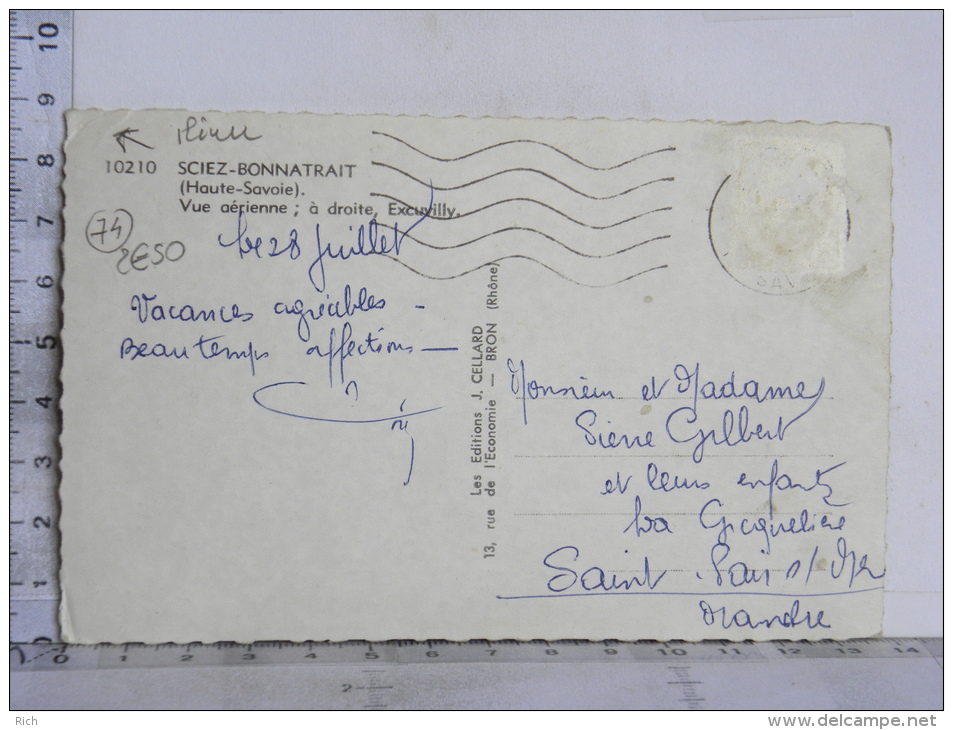 10210 SCIEZ-BONNATRAIT
(Haute-Savoie).
Vue aérienne ; à droite, Excuvilly.
74
2€50
Le 28 Juillet
Vacances agréables -
Beau temps affections -
Les Editions J. CELLARD
13, rue de l'Economie — BRON (Rhône)
Monsieur et Madame
Pierre Gilbert
et leurs enfants
La Gicquelière
Saint Pair s/ Mer
Manche
SAV
10
9
8
7
6
5
4
3
2
1
0
0 1 2 3 4 5 6 7 8 9 10 11 12 13 14
2
Rich
www.delcampe.net